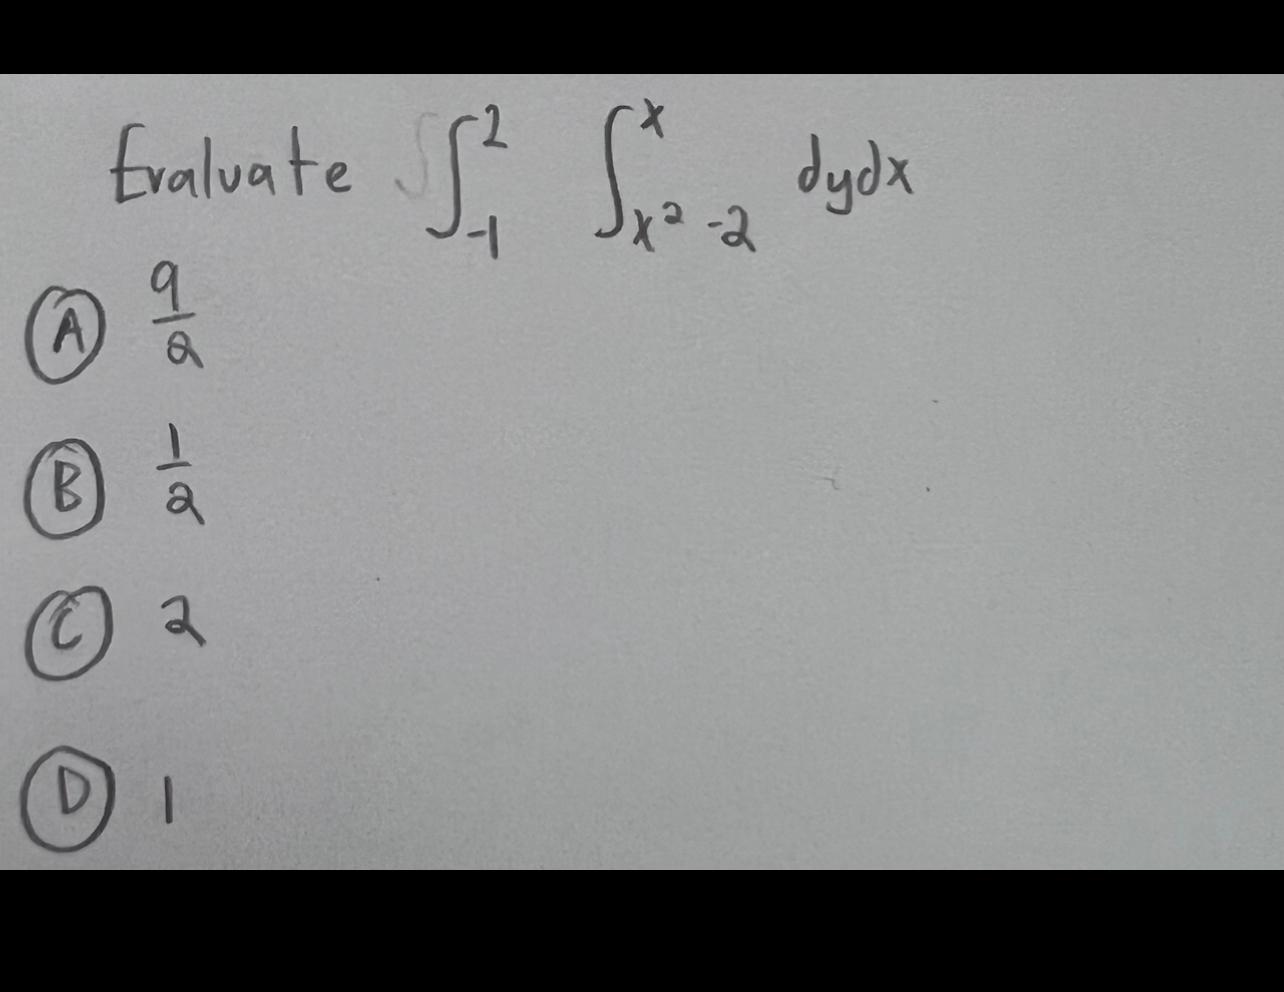 Evaluate ∫_{-1}^{2} ∫_{x²-2}^{x} dydx
Ⓐ 9/2
Ⓑ 1/2
Ⓒ 2
Ⓓ 1